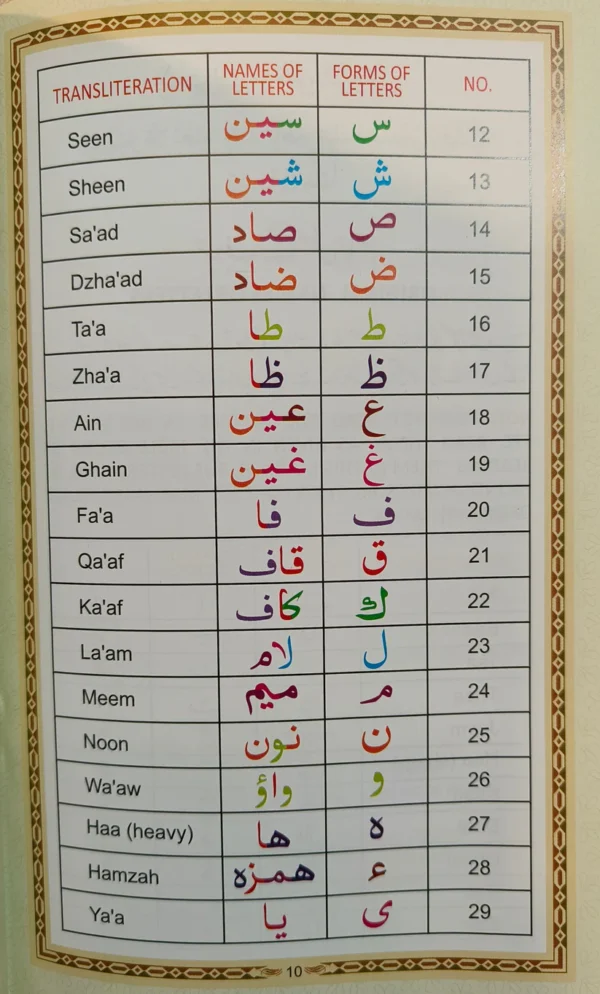 TRANSLITERATION NAMES OF LETTERS FORMS OF LETTERS NO.
Seen سین س 12
Sheen شین ش 13
Sa'ad صاد ص 14
Dzha'ad ضاد ض 15
Ta'a طا ط 16
Zha'a ظا ظ 17
Ain عین ع 18
Ghain غین غ 19
Fa'a فا ف 20
Qa'af قاف ق 21
Ka'af كاف ك 22
La'am لام ل 23
Meem میم م 24
Noon نون ن 25
Wa'aw واؤ و 26
Haa (heavy) ها ه 27
Hamzah همزه ء 28
Ya'a یا ی 29
10